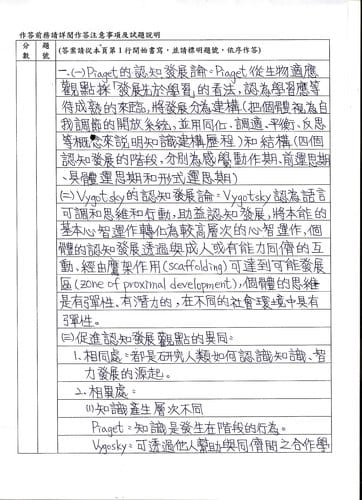 作答前務請詳閱作答注意事項及試題說明
分數
題號
(答案請從本頁第1行開始書寫，並請標明題號，依序作答)
一、(一)Piaget的認知發展論：Piaget從生物適應
觀點採「發展先於學習」的看法，認為學習應等
待成熟的來臨，將發展分為建構(把個體視為自
我調節的開放系統，並用同化、調適、平衡、反思
等概念來說明知識建構歷程)和結構(四個
認知發展的階段，分別為感學動作期、前運思期
、具體運思期和形式運思期)
(二)Vygotsky的認知發展論：Vygotsky認為語言
可調和思維和行動，助益認知發展，將本能的
基本心智運作轉化為較高層次的心智運作，個
體的認知發展透過與成人或有能力同儕的互
動、經由鷹架作用(scaffolding)可達到可能發展
區(zone of proximal development)，個體的思維
是有彈性、有潛力的，在不同的社會環境中具有
彈性。
(三)促進認知發展觀點的異同：
1.相同處：都是研究人類如何認識知識、智
力發展的源起。
2.相異處：
(1)知識產生層次不同
Piaget：知識是發生在階段的行為。
Vygosky：可透過他人幫助與同儕間之合作學